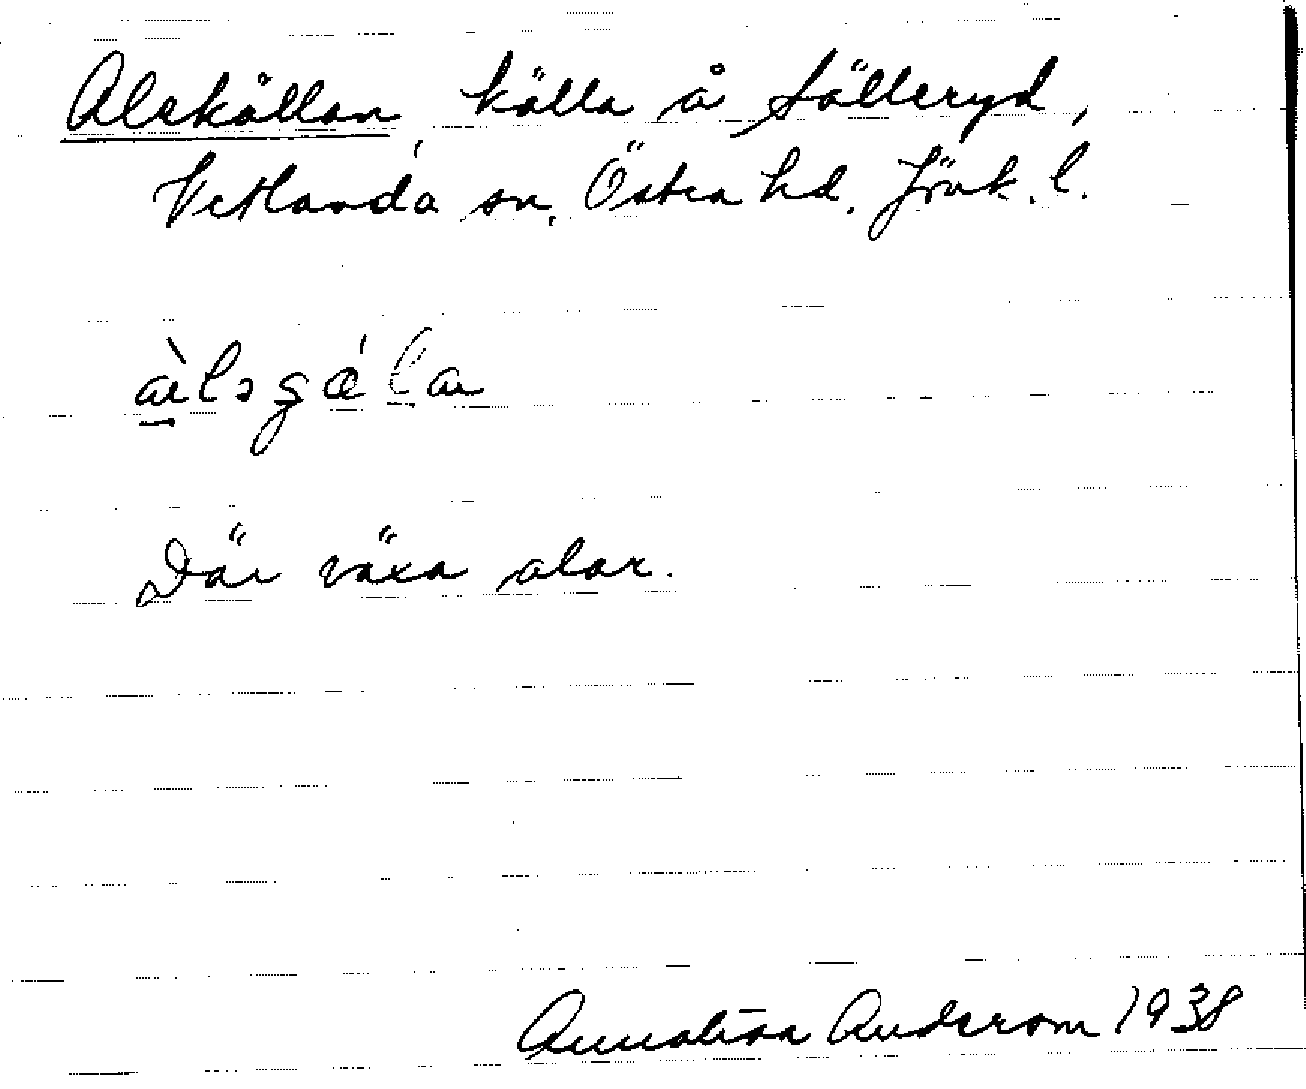 Alekällan källa å Fälleryd,
Vetlanda sn, Östra hd. Jönk. l.
Där växa alar.
Annalisa Anderson 1938